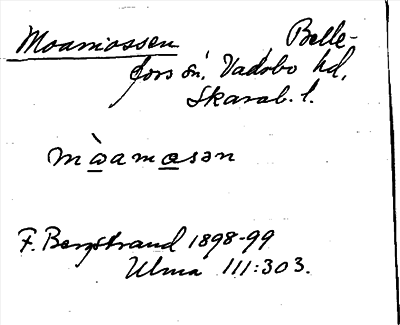 Moamossen, Belle-
fors sn, Vadsbo hd,
Skarab. l.
mɷ̀amɷsən
F. Bergstrand 1898-99
Ulma 111:303.